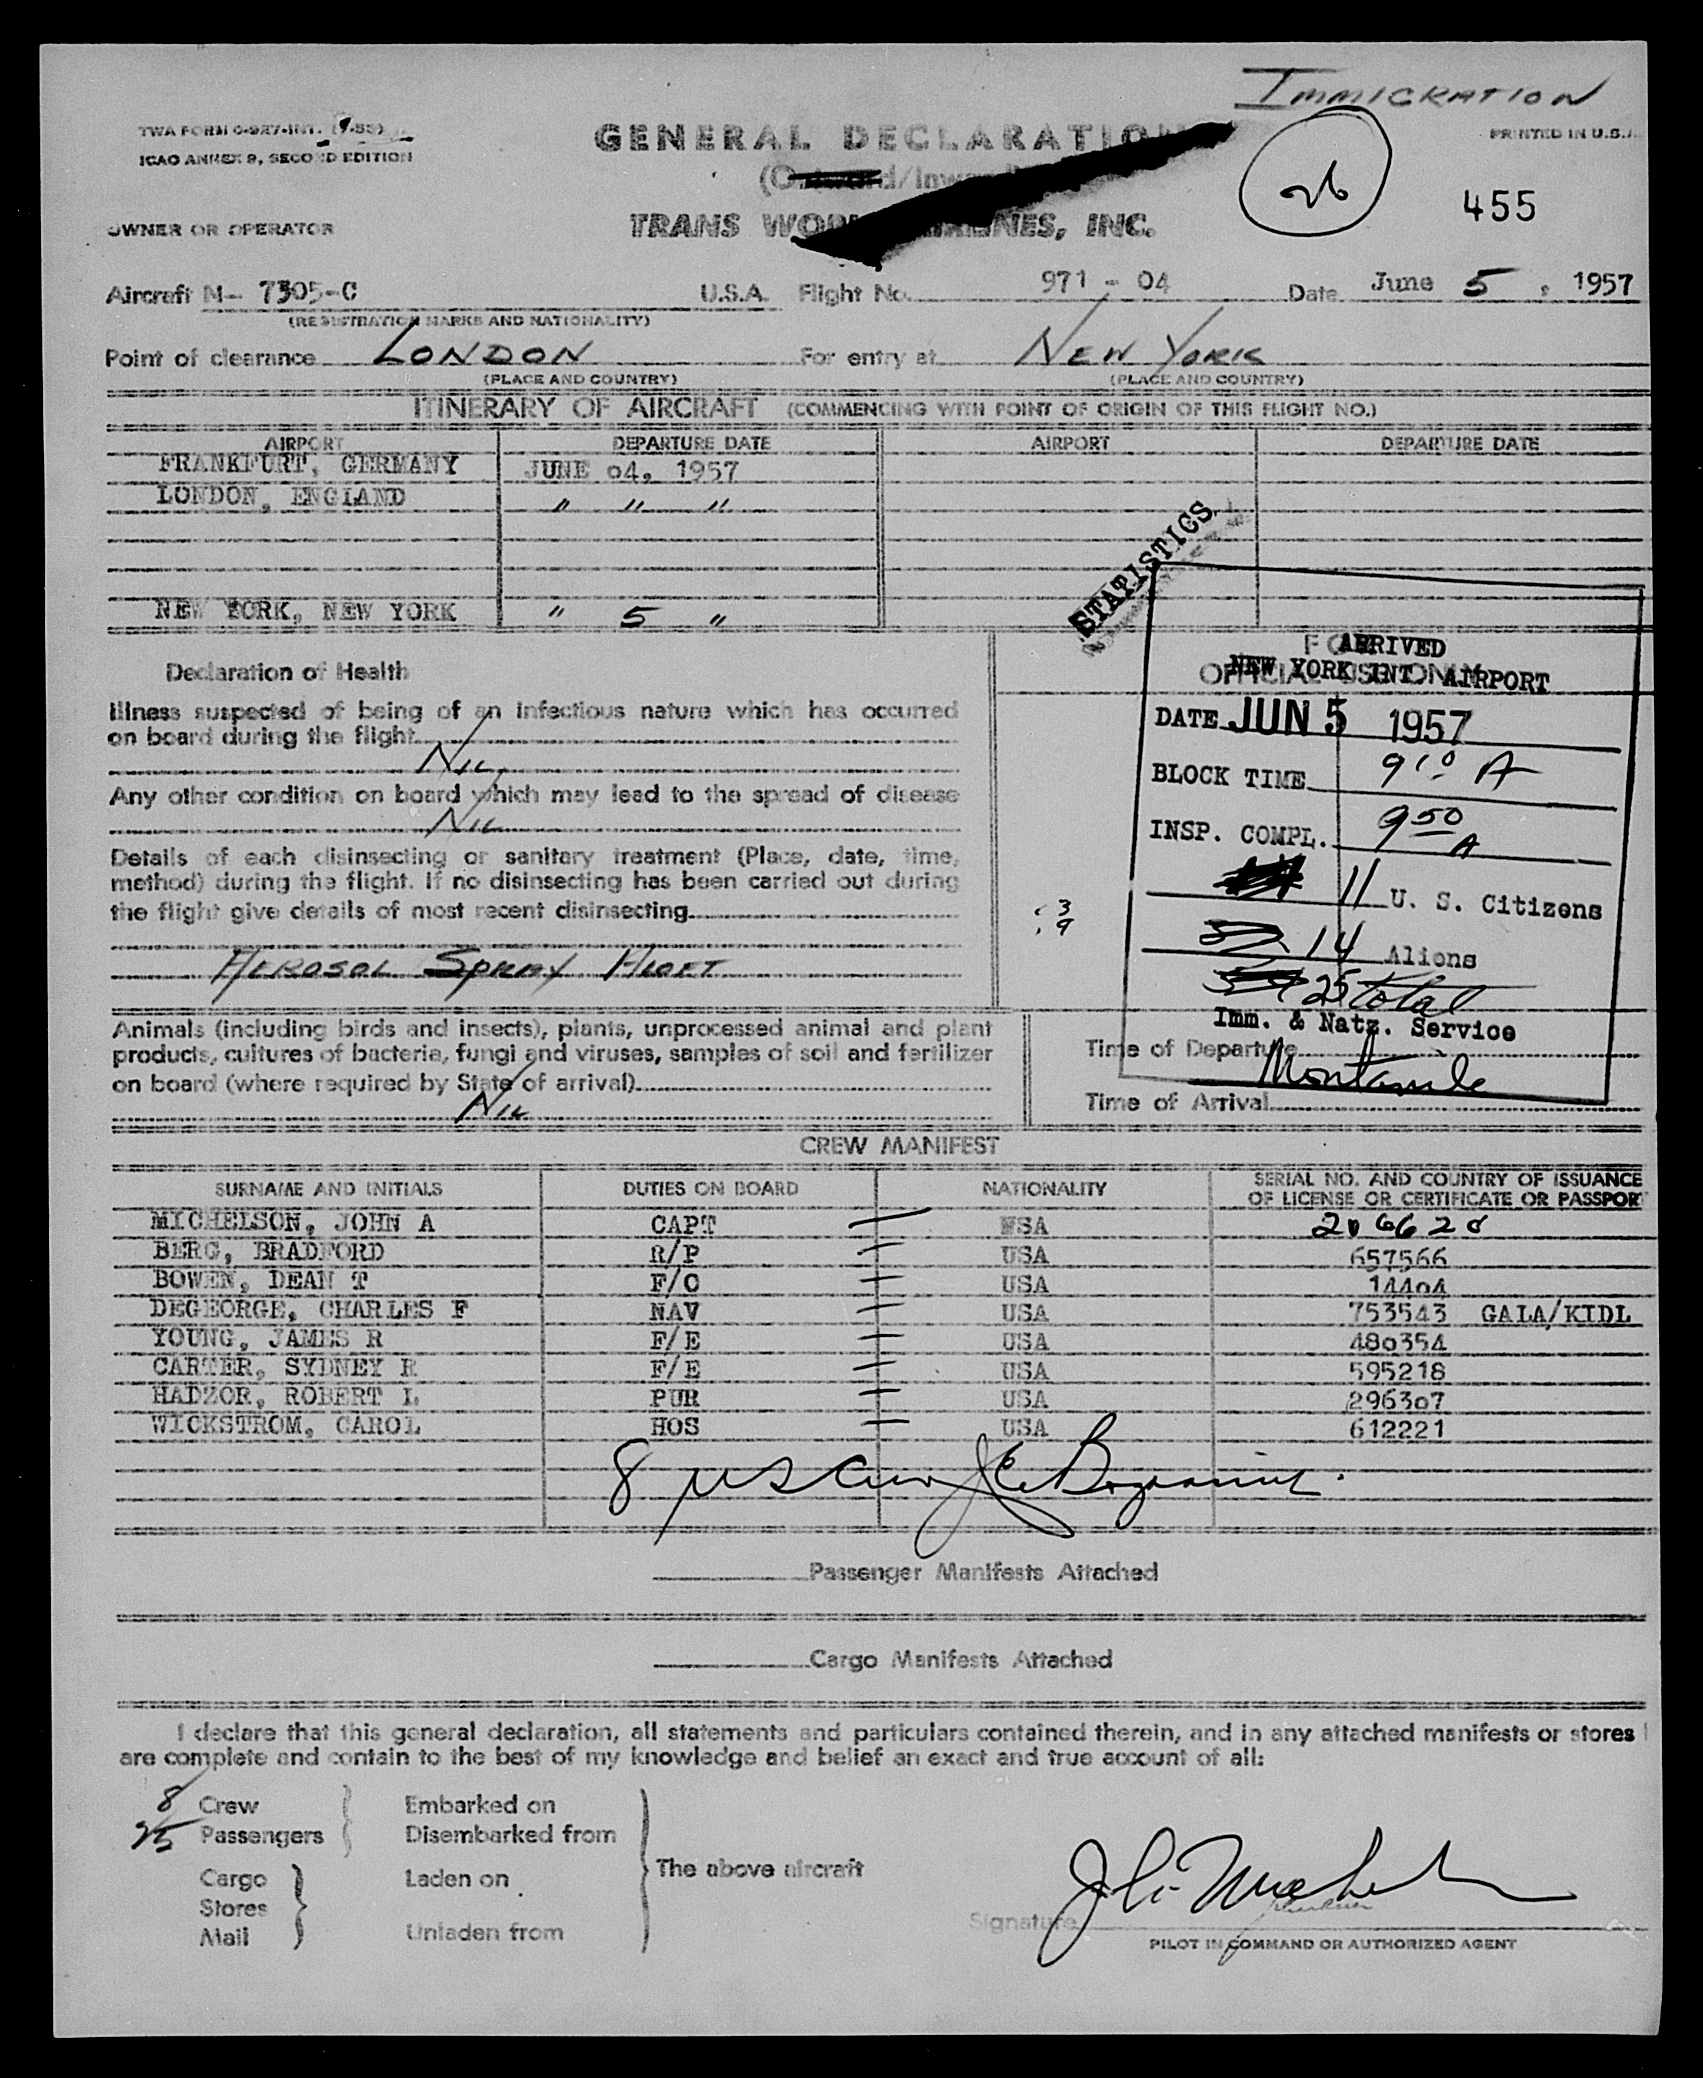 IMMIGRATION
TWA FORM O-927-INT. (9-55)
ICAO ANNEX 9, SECOND EDITION
GENERAL DECLARATION
PRINTED IN U.S.A.
26
455
OWNER OR OPERATOR
TRANS WORLD AIRLINES, INC.
Aircraft N- 7305-C U.S.A. Flight No. 971 - 04 Date June 5, 1957
(REGISTRATION MARKS AND NATIONALITY)
Point of clearance LONDON For entry at NEW YORK
(PLACE AND COUNTRY) (PLACE AND COUNTRY)
ITINERARY OF AIRCRAFT (COMMENCING WITH POINT OF ORIGIN OF THIS FLIGHT NO.)
AIRPORT DEPARTURE DATE AIRPORT DEPARTURE DATE
FRANKFURT, GERMANY JUNE 04, 1957
LONDON, ENGLAND " " "
NEW YORK, NEW YORK " 5 "
STATISTICS
Declaration of Health
FOR
OFFICIAL USE ONLY
ARRIVED
NEW YORK INT. AIRPORT
DATE JUN 5 1957
BLOCK TIME 9 10 A
INSP. COMPL. 9 50 A
11 U. S. Citizens
14 Aliens
25 total
Imm. & Natz. Service
Illness suspected of being of an infectious nature which has occurred
on board during the flight
NIL
Any other condition on board which may lead to the spread of disease
NIL
Details of each disinsecting or sanitary treatment (Place, date, time,
method) during the flight. If no disinsecting has been carried out during
the flight give details of most recent disinsecting
AEROSOL SPRAY ALOFT
Animals (including birds and insects), plants, unprocessed animal and plant
products, cultures of bacteria, fungi and viruses, samples of soil and fertilizer
on board (where required by State of arrival)
NIL
Time of Departure
Time of Arrival
CREW MANIFEST
SURNAME AND INITIALS DUTIES ON BOARD NATIONALITY SERIAL NO. AND COUNTRY OF ISSUANCE
OF LICENSE OR CERTIFICATE OR PASSPORT
MICHELSON, JOHN A CAPT USA 206628
BERG, BRADFORD R/P USA 657566
BOWEN, DEAN T F/O USA 14404
DEGEORGE, CHARLES F NAV USA 753543 GALA/KIDL
YOUNG, JAMES R F/E USA 480354
CARTER, SYDNEY R F/E USA 595218
HADZOR, ROBERT L PUR USA 296307
WICKSTROM, CAROL HOS USA 612221
8 US Crew
Passenger Manifests Attached
Cargo Manifests Attached
I declare that this general declaration, all statements and particulars contained therein, and in any attached manifests or stores l
are complete and contain to the best of my knowledge and belief an exact and true account of all:
8 Crew Embarked on
25 Passengers Disembarked from
The above aircraft
Cargo Laden on
Stores
Mail Unladen from
Signature
PILOT IN COMMAND OR AUTHORIZED AGENT